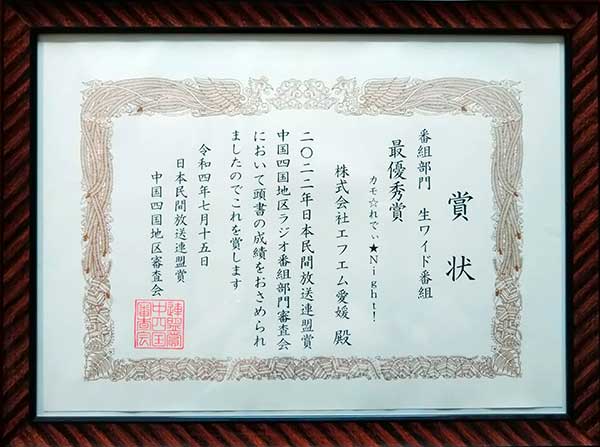 賞状
番組部門 生ワイド番組
最優秀賞
カモ☆れでぃ★Night!
株式会社エフエム愛媛 殿
二〇二二年日本民間放送連盟賞
中国四国地区ラジオ番組部門審査会
において頭書の成績をおさめられ
ましたのでこれを賞します
令和四年七月十五日
日本民間放送連盟賞
中国四国地区審査会
連盟賞
中四国
審査会